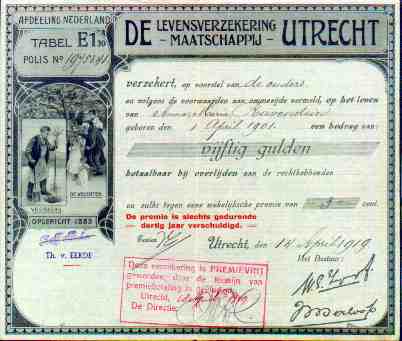 AFDEELING NEDERLAND
TABEL E1
POLIS No
DE LEVENSVERZEKERING
MAATSCHAPPIJ UTRECHT
verzekert, op voorstel van de ouders
en volgens de voorwaarden aan ommezijde vermeld, op het leven
van Maria
geboren den 1 April 1901. een bedrag van:
vijftig gulden
betaalbaar bij overlijden aan de rechthebbenden
en zulks tegen eene wekelijksche premie van 3 cent.
De premie is slechts gedurende
— dertig jaar verschuldigd. —
Utrecht, den 14 April 1919
Het Bestuur:
VERZEKERD
DE WEDUWEN
OPGERICHT 1883
Th. v. EERDE
Deze verzekering is PREMIEVRIJ
geworden, door de termijn van
premiebetaling is geëindigd.
Utrecht,
De Directie,